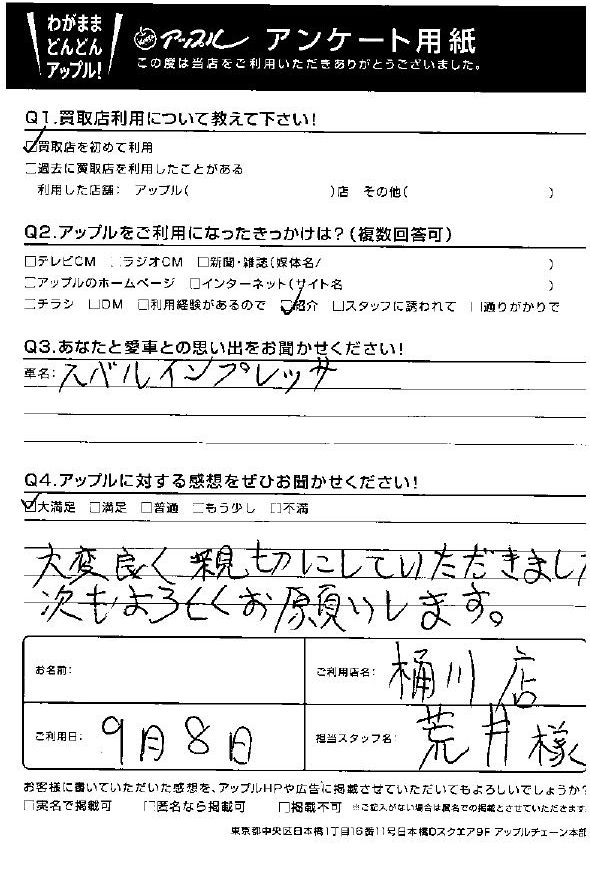 わがまま
どんどん
アップル!
アップル アンケート用紙
この度は当店をご利用いただきありがとうございました。
Q1.買取店利用について教えて下さい!
☑買取店を初めて利用
□過去に買取店を利用したことがある
利用した店舗: アップル( )店 その他( )
Q2.アップルをご利用になったきっかけは?(複数回答可)
□テレビCM □ラジオCM □新聞・雑誌(媒体名/ )
□アップルのホームページ □インターネット(サイト名 )
□チラシ □DM □利用経験があるので ☑紹介 □スタッフに誘われて □通りがかりで
Q3.あなたと愛車との思い出をお聞かせください!
車名: スバルインプレッサ
Q4.アップルに対する感想をぜひお聞かせください!
☑大満足 □満足 □普通 □もう少し □不満
大変良く親切にしていただきました
次もよろしくお願いします。
お名前:
ご利用店名: 桶川店
ご利用日: 9月8日
担当スタッフ名: 荒井様
お客様に書いていただいた感想を、アップルHPや広告に掲載させていただいてもよろしいでしょうか?
□実名で掲載可 □匿名なら掲載可 □掲載不可 ※ご記入がない場合は匿名での掲載とさせていただきます
東京都中央区日本橋1丁目16番11号日本橋Dスクエア9F アップルチェーン本部